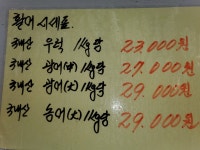 활어 시세표.
국내산 우럭 1kg당 23.000원
국내산 광어(中) 1kg당 27.000원
국내산 광어(大) 1kg당 29.000원
국내산 농어(大) 1kg당 29.000원